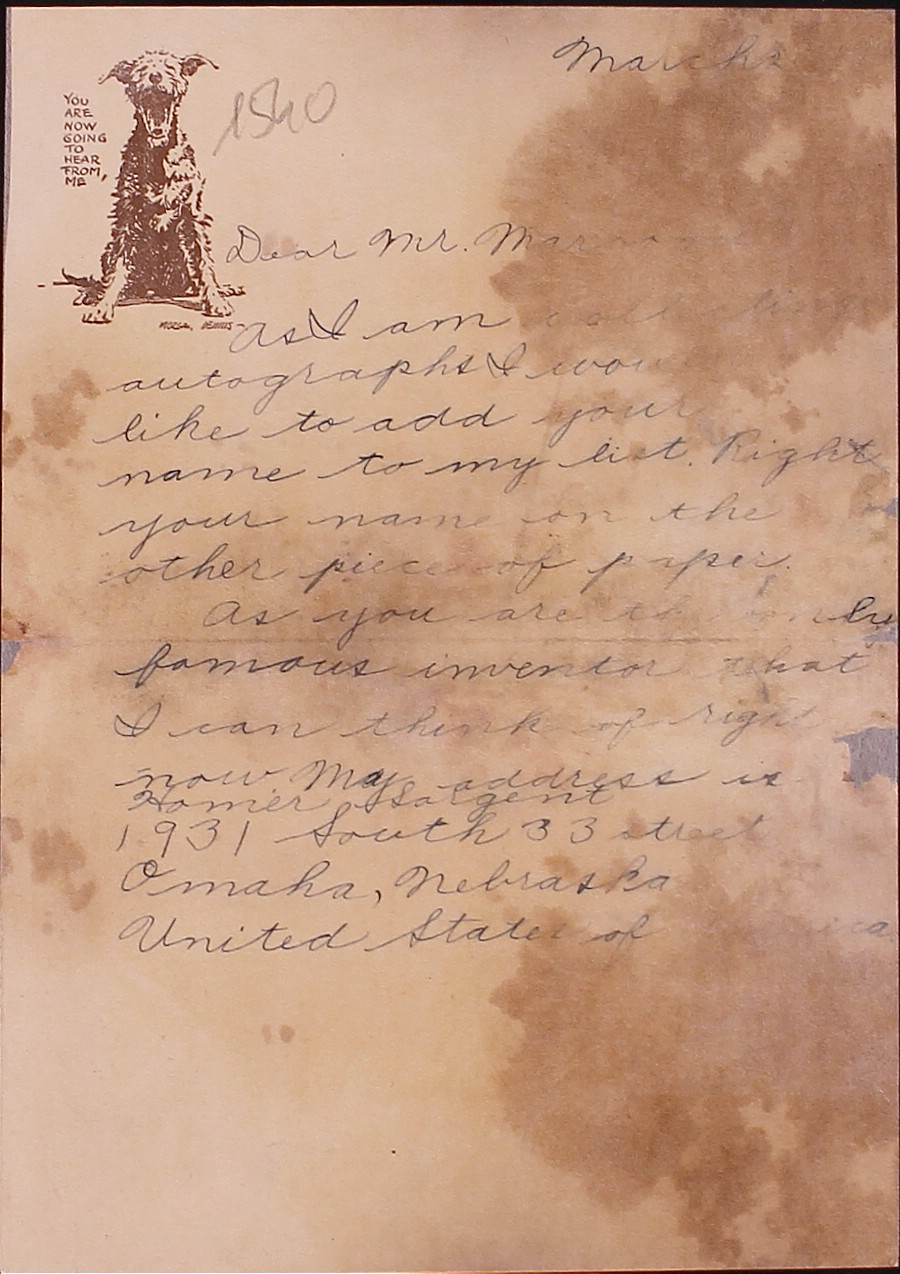 March
YOU
ARE
NOW
GOING
TO
HEAR
FROM,
ME
1540
Dear Mr.
As I am
autographs I
like to add your
name to my list. Right
your name on the
other piece of paper.
As you are the only
famous inventor that
I can think of right
now My address is
Homer Sargent
1931 South 33 street
Omaha, Nebraska
United States of